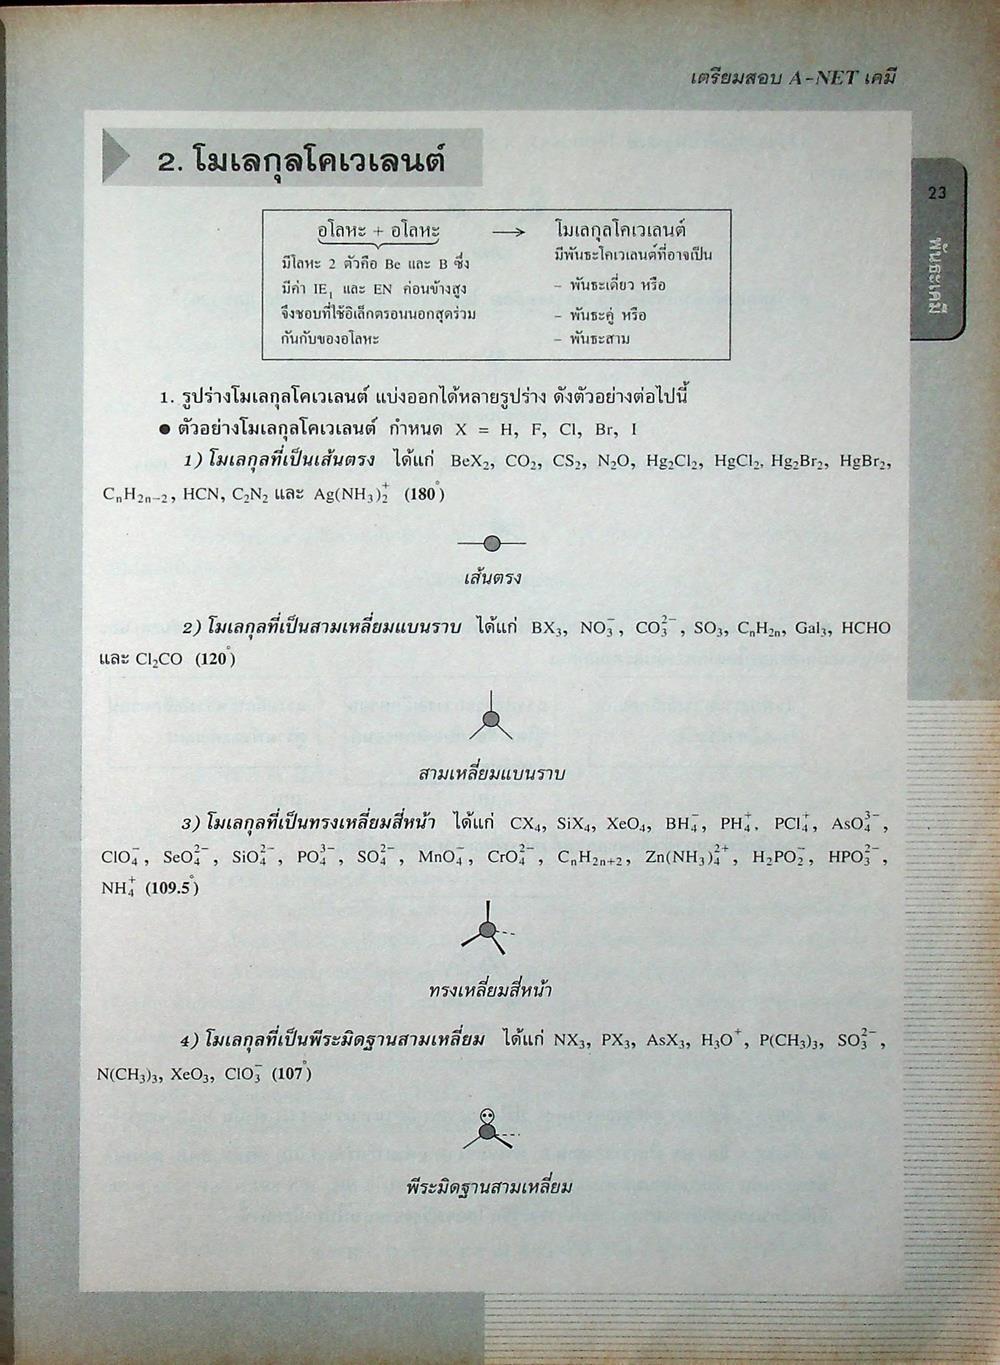 เตรียมสอบ A-NET เคมี
23
พันธะเคมี
2. โมเลกุลโคเวเลนต์
อโลหะ + อโลหะ → โมเลกุลโคเวเลนต์
มีโลหะ 2 ตัวคือ Be และ B ซึ่ง
มีค่า IE₁ และ EN ค่อนข้างสูง
จึงชอบที่ใช้อิเล็กตรอนนอกสุดร่วม
กันกับของอโลหะ
มีพันธะโคเวเลนต์ที่อาจเป็น
- พันธะเดี่ยว หรือ
- พันธะคู่ หรือ
- พันธะสาม
1. รูปร่างโมเลกุลโคเวเลนต์ แบ่งออกได้หลายรูปร่าง ดังตัวอย่างต่อไปนี้
● ตัวอย่างโมเลกุลโคเวเลนต์ กำหนด X = H, F, Cl, Br, I
1) โมเลกุลที่เป็นเส้นตรง ได้แก่ BeX₂, CO₂, CS₂, N₂O, Hg₂Cl₂, HgCl₂, Hg₂Br₂, HgBr₂,
CₙH₂ₙ₋₂, HCN, C₂N₂ และ Ag(NH₃)₂⁺ (180°)
เส้นตรง
2) โมเลกุลที่เป็นสามเหลี่ยมแบนราบ ได้แก่ BX₃, NO₃⁻, CO₃²⁻, SO₃, CₙH₂ₙ, GaI₃, HCHO
และ Cl₂CO (120°)
สามเหลี่ยมแบนราบ
3) โมเลกุลที่เป็นทรงเหลี่ยมสี่หน้า ได้แก่ CX₄, SiX₄, XeO₄, BH₄⁻, PH₄⁺, PCl₄⁺, AsO₄³⁻,
ClO₄⁻, SeO₄²⁻, SiO₄²⁻, PO₄³⁻, SO₄²⁻, MnO₄⁻, CrO₄²⁻, CₙH₂ₙ₊₂, Zn(NH₃)₄²⁺, H₂PO₂⁻, HPO₃²⁻,
NH₄⁺ (109.5°)
ทรงเหลี่ยมสี่หน้า
4) โมเลกุลที่เป็นพีระมิดฐานสามเหลี่ยม ได้แก่ NX₃, PX₃, AsX₃, H₃O⁺, P(CH₃)₃, SO₃²⁻,
N(CH₃)₃, XeO₃, ClO₃⁻ (107°)
พีระมิดฐานสามเหลี่ยม